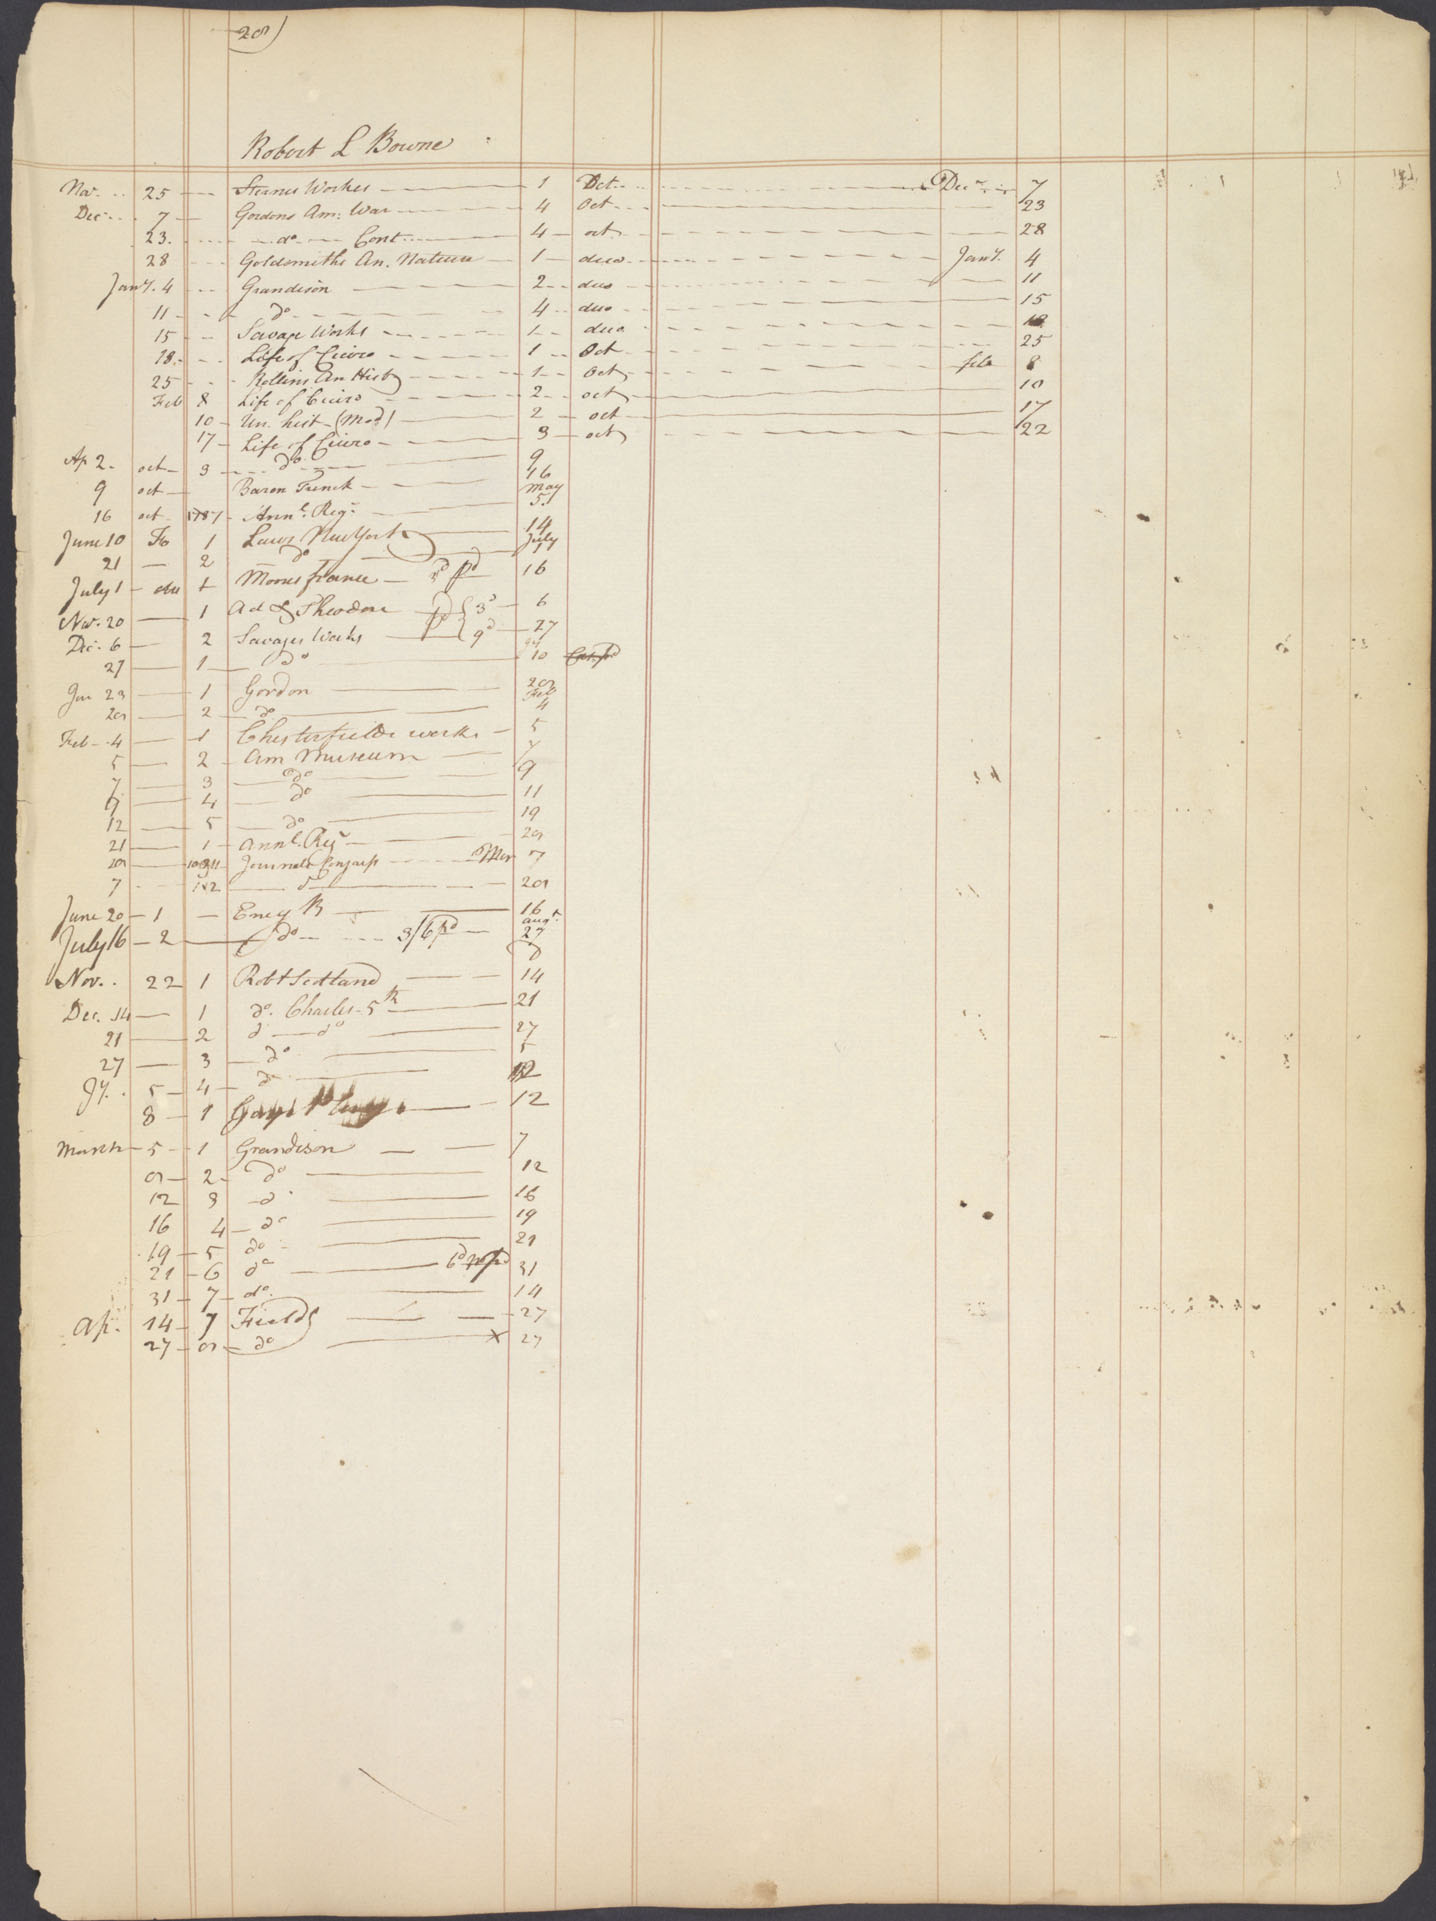 28
Robert L Bowne
Nov. 25 Sternes Workes 1 Oct. Decr. 7
Dec. 7 Gordons Am: War 4 Oct 23
23. do Cont. 4 oct 28
28 Goldsmiths An. Nature 1 duo Jany. 4
Jany. 4 Grandison 2 duo 11
11 do 4 duo 15
15 Savage Works 1 duo 18
18. Life of Cicero 1 Oct 25
25 Rollins An Histy 1 Oct feb 8
Feb 8 Life of Cicero 2 oct 10
10 Un. hist (Mod) 2 oct 17
17 Life of Cicero 3 oct 22
Ap 2. oct 3 do 9
9 oct Baron Trenck 16
16 oct 1787 Annl. Regr. May 5
June 10 Fo 1 Laws New York 14
21 2 do July 1
July 1 duo 1 Moores france pd 16
Nov. 20 1 Ad & Theodore pd 3d 6
Dec. 6 2 Savages Works 9d 27
27 1 do 10
Jan 23 1 Gordon 28
28 2 do Feb 4
Feb 4 1 Chesterfields works 5
5 2 Am Museum 7
7 3 do 9
9 4 do 11
12 5 do 19
21 1 Annl. Regr 28
28 Journals Congress Mar 7
7 1&2 do 28
June 20 1 Ency B 16
July 16 2 do 3/6 pd augt. 27
Nov. 22 1 Robt Scotland 14
Dec. 14 1 do. Charles 5th 21
21 2 do do 27
27 3 do 5
Jy. 5 4 do 12
8 1 12
March 5 1 Grandison 7
8 2 do 12
12 3 do 16
16 4 do 19
19 5 do 21
21 6 do 6d pd 31
31 7 do. 14
Ap. 14 7 Fields 27
27 8 do x 27